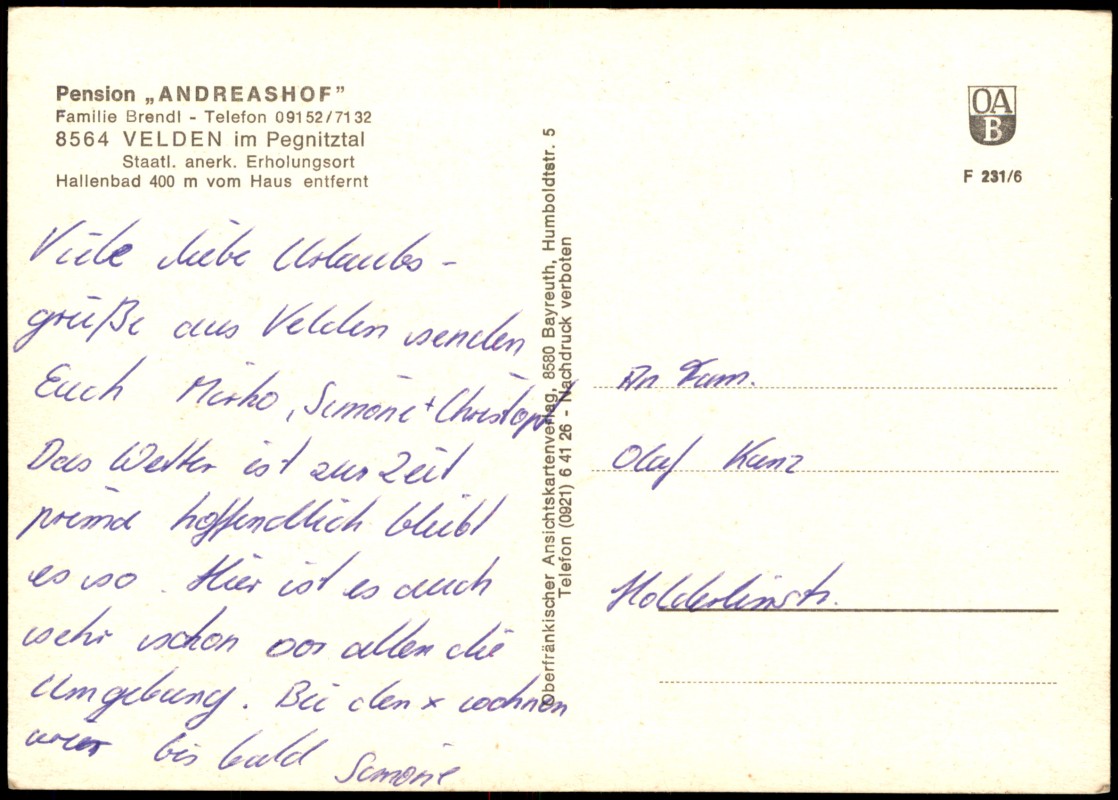 Pension „ANDREASHOF”
Familie Brendl - Telefon 09152/7132
8564 VELDEN im Pegnitztal
Staatl. anerk. Erholungsort
Hallenbad 400 m vom Haus entfernt
Viele liebe Urlaubs-
grüße aus Velden senden
Euch Mirko, Simone + Christoph
Das Wetter ist zur Zeit
prima hoffendlich bleibt
es so. Hier ist es auch
sehr schon vor allen die
Umgebung. Bei den x wohnen
wir bis bald Simone
Oberfränkischer Ansichtskartenverlag, 8580 Bayreuth, Humboldtstr. 5
Telefon (0921) 6 41 26 - Nachdruck verboten
OA
B
F 231/6
An Fam.
Olaf Kanz
Holderlinstr.